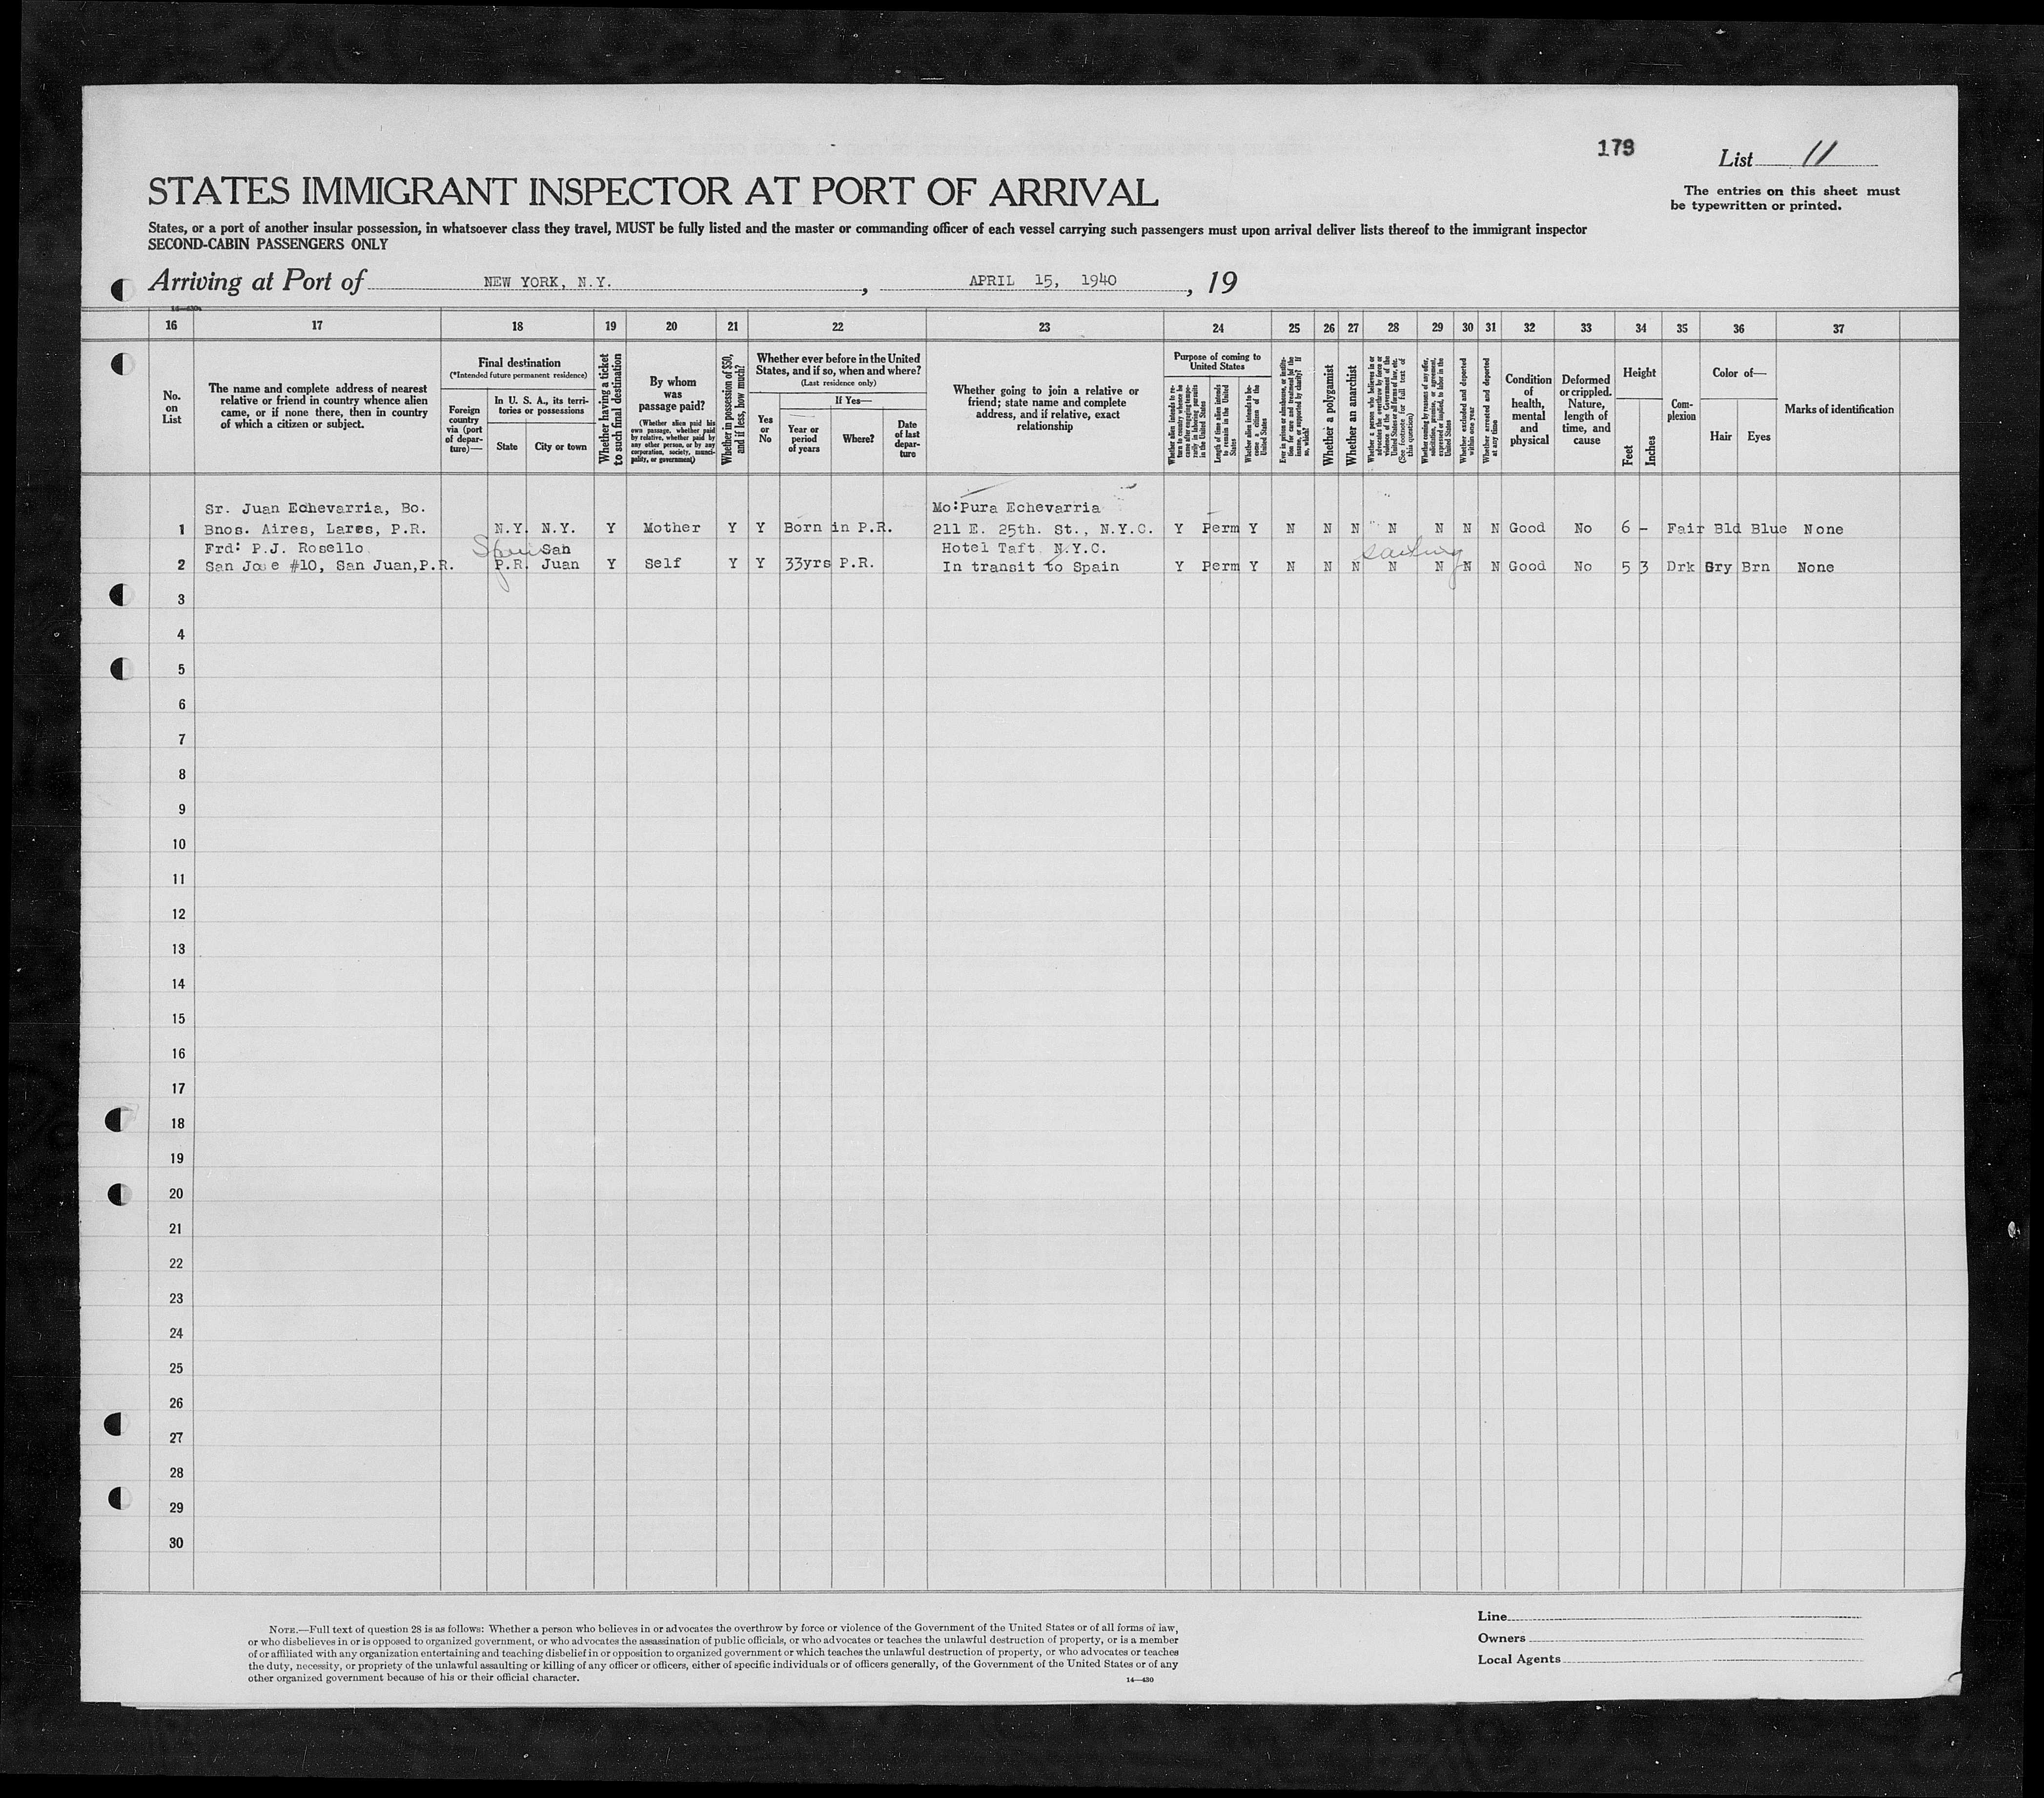 179
List 11
The entries on this sheet must
be typewritten or printed.
STATES IMMIGRANT INSPECTOR AT PORT OF ARRIVAL
States, or a port of another insular possession, in whatsoever class they travel, MUST be fully listed and the master or commanding officer of each vessel carrying such passengers must upon arrival deliver lists thereof to the immigrant inspector
SECOND-CABIN PASSENGERS ONLY
Arriving at Port of NEW YORK, N.Y., APRIL 15, 1940, 19
16 17 18 19 20 21 22 23 24 25 26 27 28 29 30 31 32 33 34 35 36 37
No.
on
List
The name and complete address of nearest
relative or friend in country whence alien
came, or if none there, then in country
of which a citizen or subject.
Final destination
(*Intended future permanent residence)
Foreign
country
via (port
of depar-
ture)—
In U. S. A., its terri-
tories or possessions
State
City or town
Whether having a ticket
to such final destination
By whom
was
passage paid?
(Whether alien paid his
own passage, whether paid
by relative, whether paid by
any other person, or by any
corporation, society, munici-
pality, or government)
Whether in possession of $50,
and if less, how much?
Whether ever before in the United
States, and if so, when and where?
(Last residence only)
Yes
or
No
If Yes—
Year or
period
of years
Where?
Date
of last
depar-
ture
Whether going to join a relative or
friend; state name and complete
address, and if relative, exact
relationship
Purpose of coming to
United States
Whether alien intends to re-
turn to country whence he
came after engaging tempo-
rarily in laboring pursuits
in the United States
Length of time alien intends
to remain in the United
States
Whether alien intends to be-
come a citizen of the
United States
Ever in prison or almshouse, or institu-
tion for care and treatment of the
insane, or supported by charity? If
so, which?
Whether a polygamist
Whether an anarchist
Whether a person who believes in or
advocates the overthrow by force or
violence of the Government of the
United States or all forms of law, etc.
(See footnote for full text of
this question)
Whether coming by reason of any offer,
solicitation, promise, or agreement,
expressed or implied, to labor in the
United States
Whether excluded and deported
within one year
Whether arrested and deported
at any time
Condition
of
health,
mental
and
physical
Deformed
or crippled.
Nature,
length of
time, and
cause
Height
Feet
Inches
Com-
plexion
Color of—
Hair
Eyes
Marks of identification
Sr. Juan Echevarria, Bo. Mo:Pura Echevarria
1 Bnos. Aires, Lares, P.R. N.Y. N.Y. Y Mother Y Y Born in P.R. 211 E. 25th. St., N.Y.C. Y Perm Y N N N N N N N Good No 6 - Fair Bld Blue None
Frd: P.J. Rosello Spain San Hotel Taft N.Y.C.
2 San Jose #10, San Juan,P.R. P.R. Juan Y Self Y Y 33yrs P.R. In transit to Spain Y Perm Y N N N N N N N Good No 5 3 Drk Gry Brn None
3
4
5
6
7
8
9
10
11
12
13
14
15
16
17
18
19
20
21
22
23
24
25
26
27
28
29
30
NOTE.—Full text of question 28 is as follows: Whether a person who believes in or advocates the overthrow by force or violence of the Government of the United States or of all forms of law,
or who disbelieves in or is opposed to organized government, or who advocates the assassination of public officials, or who advocates or teaches the unlawful destruction of property, or is a member
of or affiliated with any organization entertaining and teaching disbelief in or opposition to organized government or which teaches the unlawful destruction of property, or who advocates or teaches
the duty, necessity, or propriety of the unlawful assaulting or killing of any officer or officers, either of specific individuals or of officers generally, of the Government of the United States or of any
other organized government because of his or their official character.
14—430
Line
Owners
Local Agents